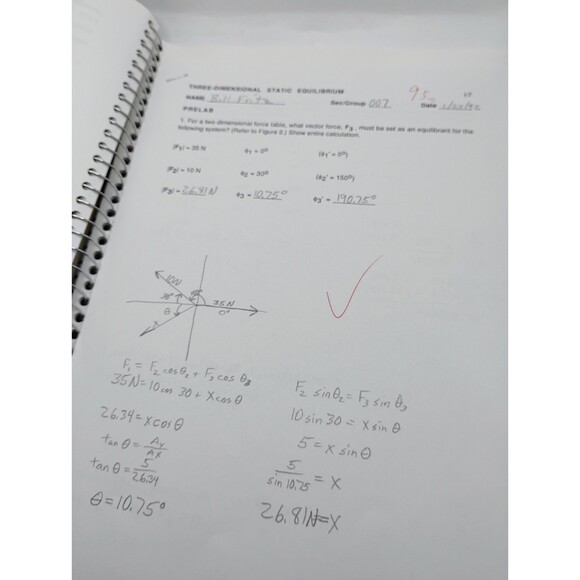 THREE-DIMENSIONAL STATIC EQUILIBRIUM
NAME Bill Fritz Sec/Group 007 Date
95
PRELAB
1. For a two dimensional force table, what vector force, F3, must be set as an equilibrant for the
following system? (Refer to Figure 2.) Show entire calculation.
|F1| = 35 N ϕ1 = 0º (ϕ1' = 0º)
|F2| = 10 N ϕ2 = 30º (ϕ2' = 150º)
|F3| = 26.81 N ϕ3 = 10.75° ϕ3' = 190.75°
10N
30°
35N
0°
θ
x
F1 = F2 cos θ2 + F3 cos θ3
35N = 10 cos 30 + x cos θ
26.34 = x cos θ
tan θ = Ay/Ax
tan θ = 5/26.34
θ = 10.75°
F2 sin θ2 = F3 sin θ3
10 sin 30 = x sin θ
5 = x sin θ
5/sin 10.75 = x
26.81N = x